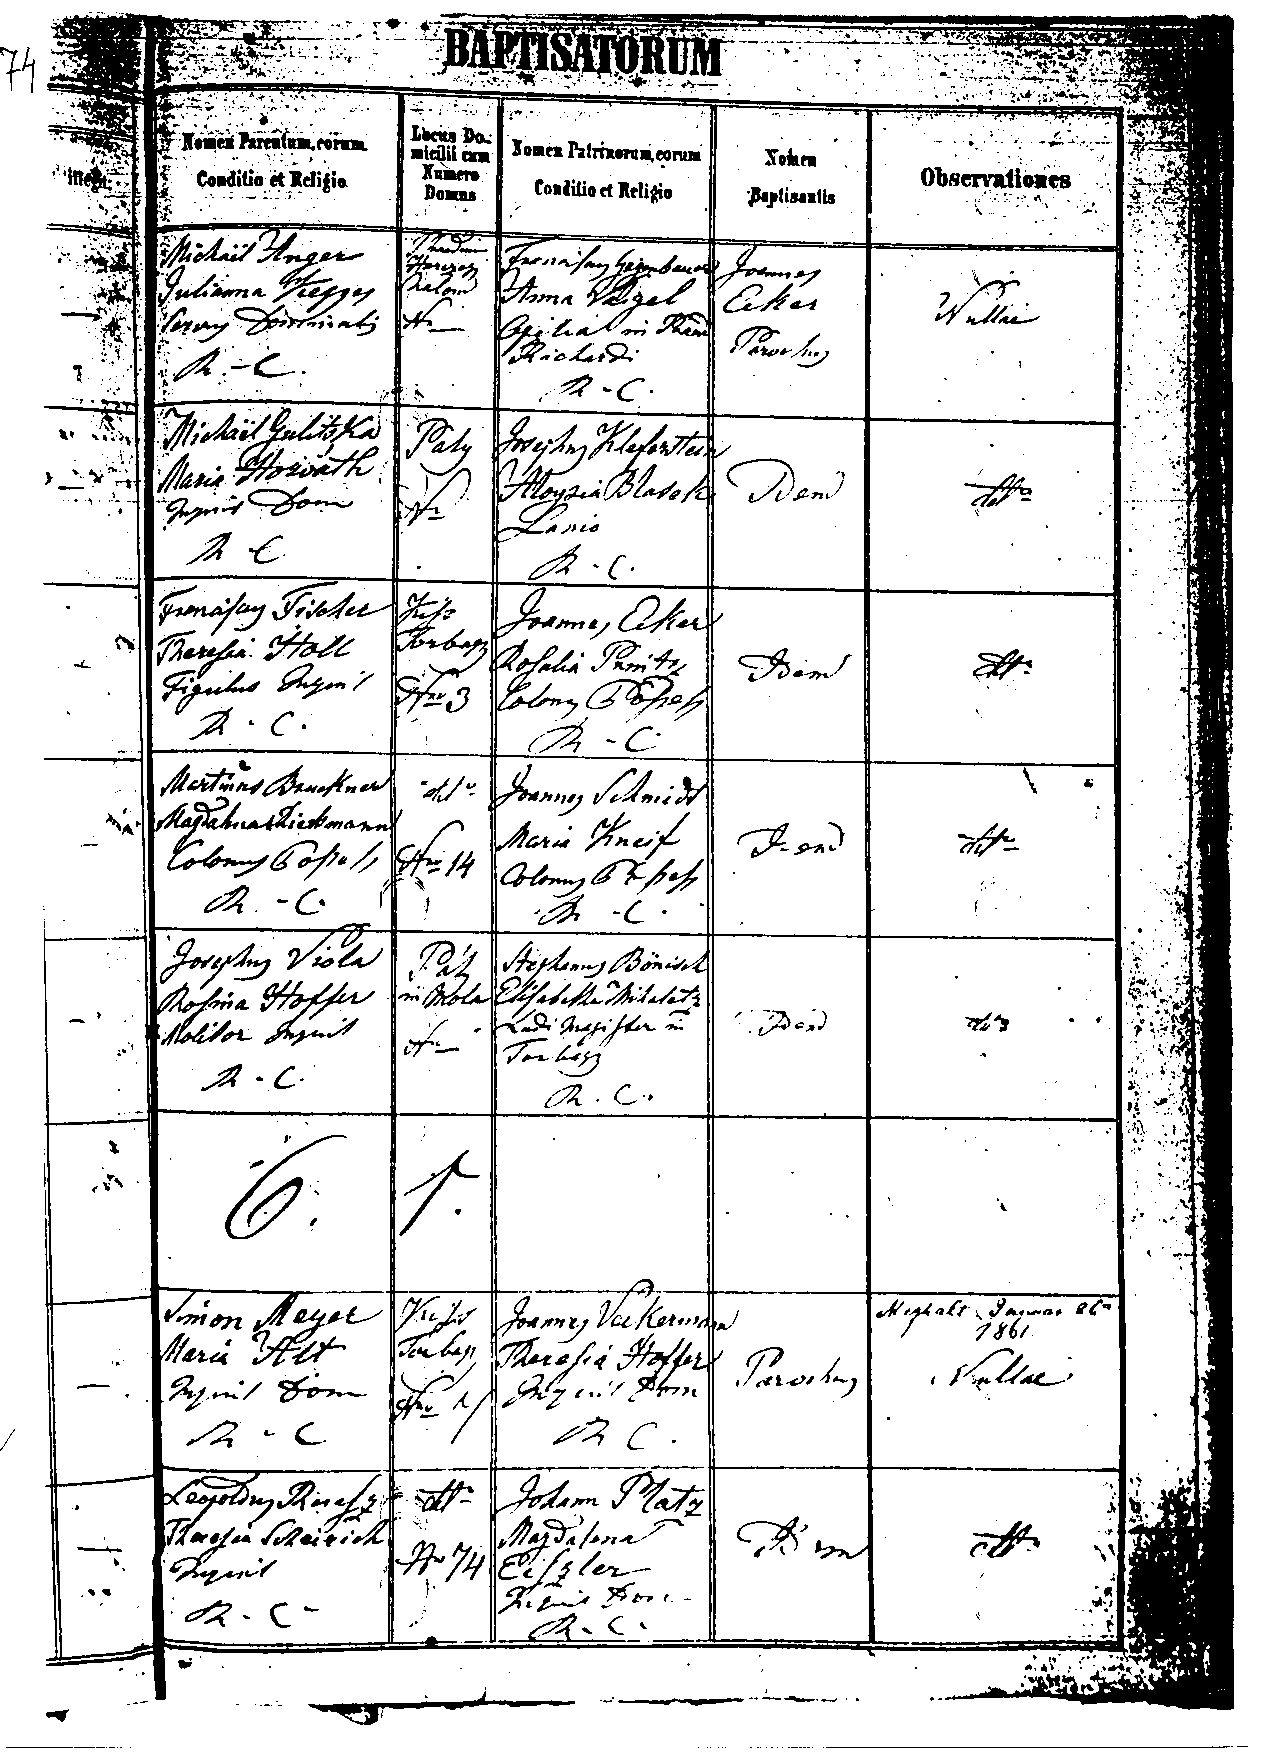 74
BAPTISATORUM
Nomen Parentum, eorum
Conditio et Religio
Locus Do-
micilii cum
Numero
Domus
Nomen Patrinorum, eorum
Conditio et Religio
Nomen
Baptisantis
Observationes
Michaël Unger
Julianna
R. - C.
Nr
Anna
in
Richardi
R - C.
Joannes
Ecker
Parochus
Nullae
Michaël Gulitska
Maria Horváth
Inquil Dom
R - C
Páty
Nr
Josephus Kleferstein
Aloysia Blasek
Lanio
R - C.
Idem
dtto
Franciscus Fischer
Theresia Holl
Figulus Inquil
R - C.
Kis
Torbagy
Nro 3
Joannes Ecker
Rosalia
Colonus
R - C
Idem
dtto
Martinus Bruckner
Magdalena
Colonus
R. - C.
dtto
Nro 14
Joannes Schmidt
Maria Kneif
Colonus
R - C.
Idem
dtto
Josephus Viola
Rosina Hoffer
Molitor Inquil
R - C.
Páty
in Mola
Nr
Stephanus Bönisch
Elisabetha
Ludi Magister in
Torbágy
R. C.
Idem
dtto
6. 1.
Simon Meyer
Maria Alt
Inquil Dom
R - C
Torbagy
Nro
Joannes Vackermann
Theresia Hoffer
Inquil Dom
R C.
Parochus
Meghalt Januar 26n
1861
Nullae
Leopoldus
Theresia
Inquil
R - C -
dtto
Nro 74
Johann Platz
Magdalena
Eiszler
Inquil Dom
R. - C.
Idem
dtto